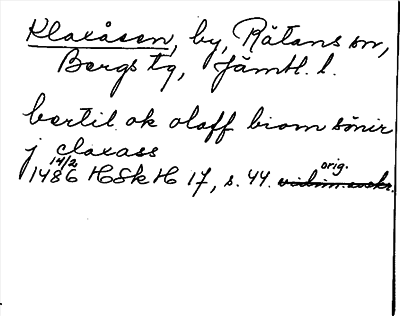 Klaxåsen, by, Rätans sn,
Bergs tg, Jämtl. l.
bertil ok olaff biorn sönir
j claxass
14/2
1486 HSkH 17, s. 44. orig. vidim. avskr.